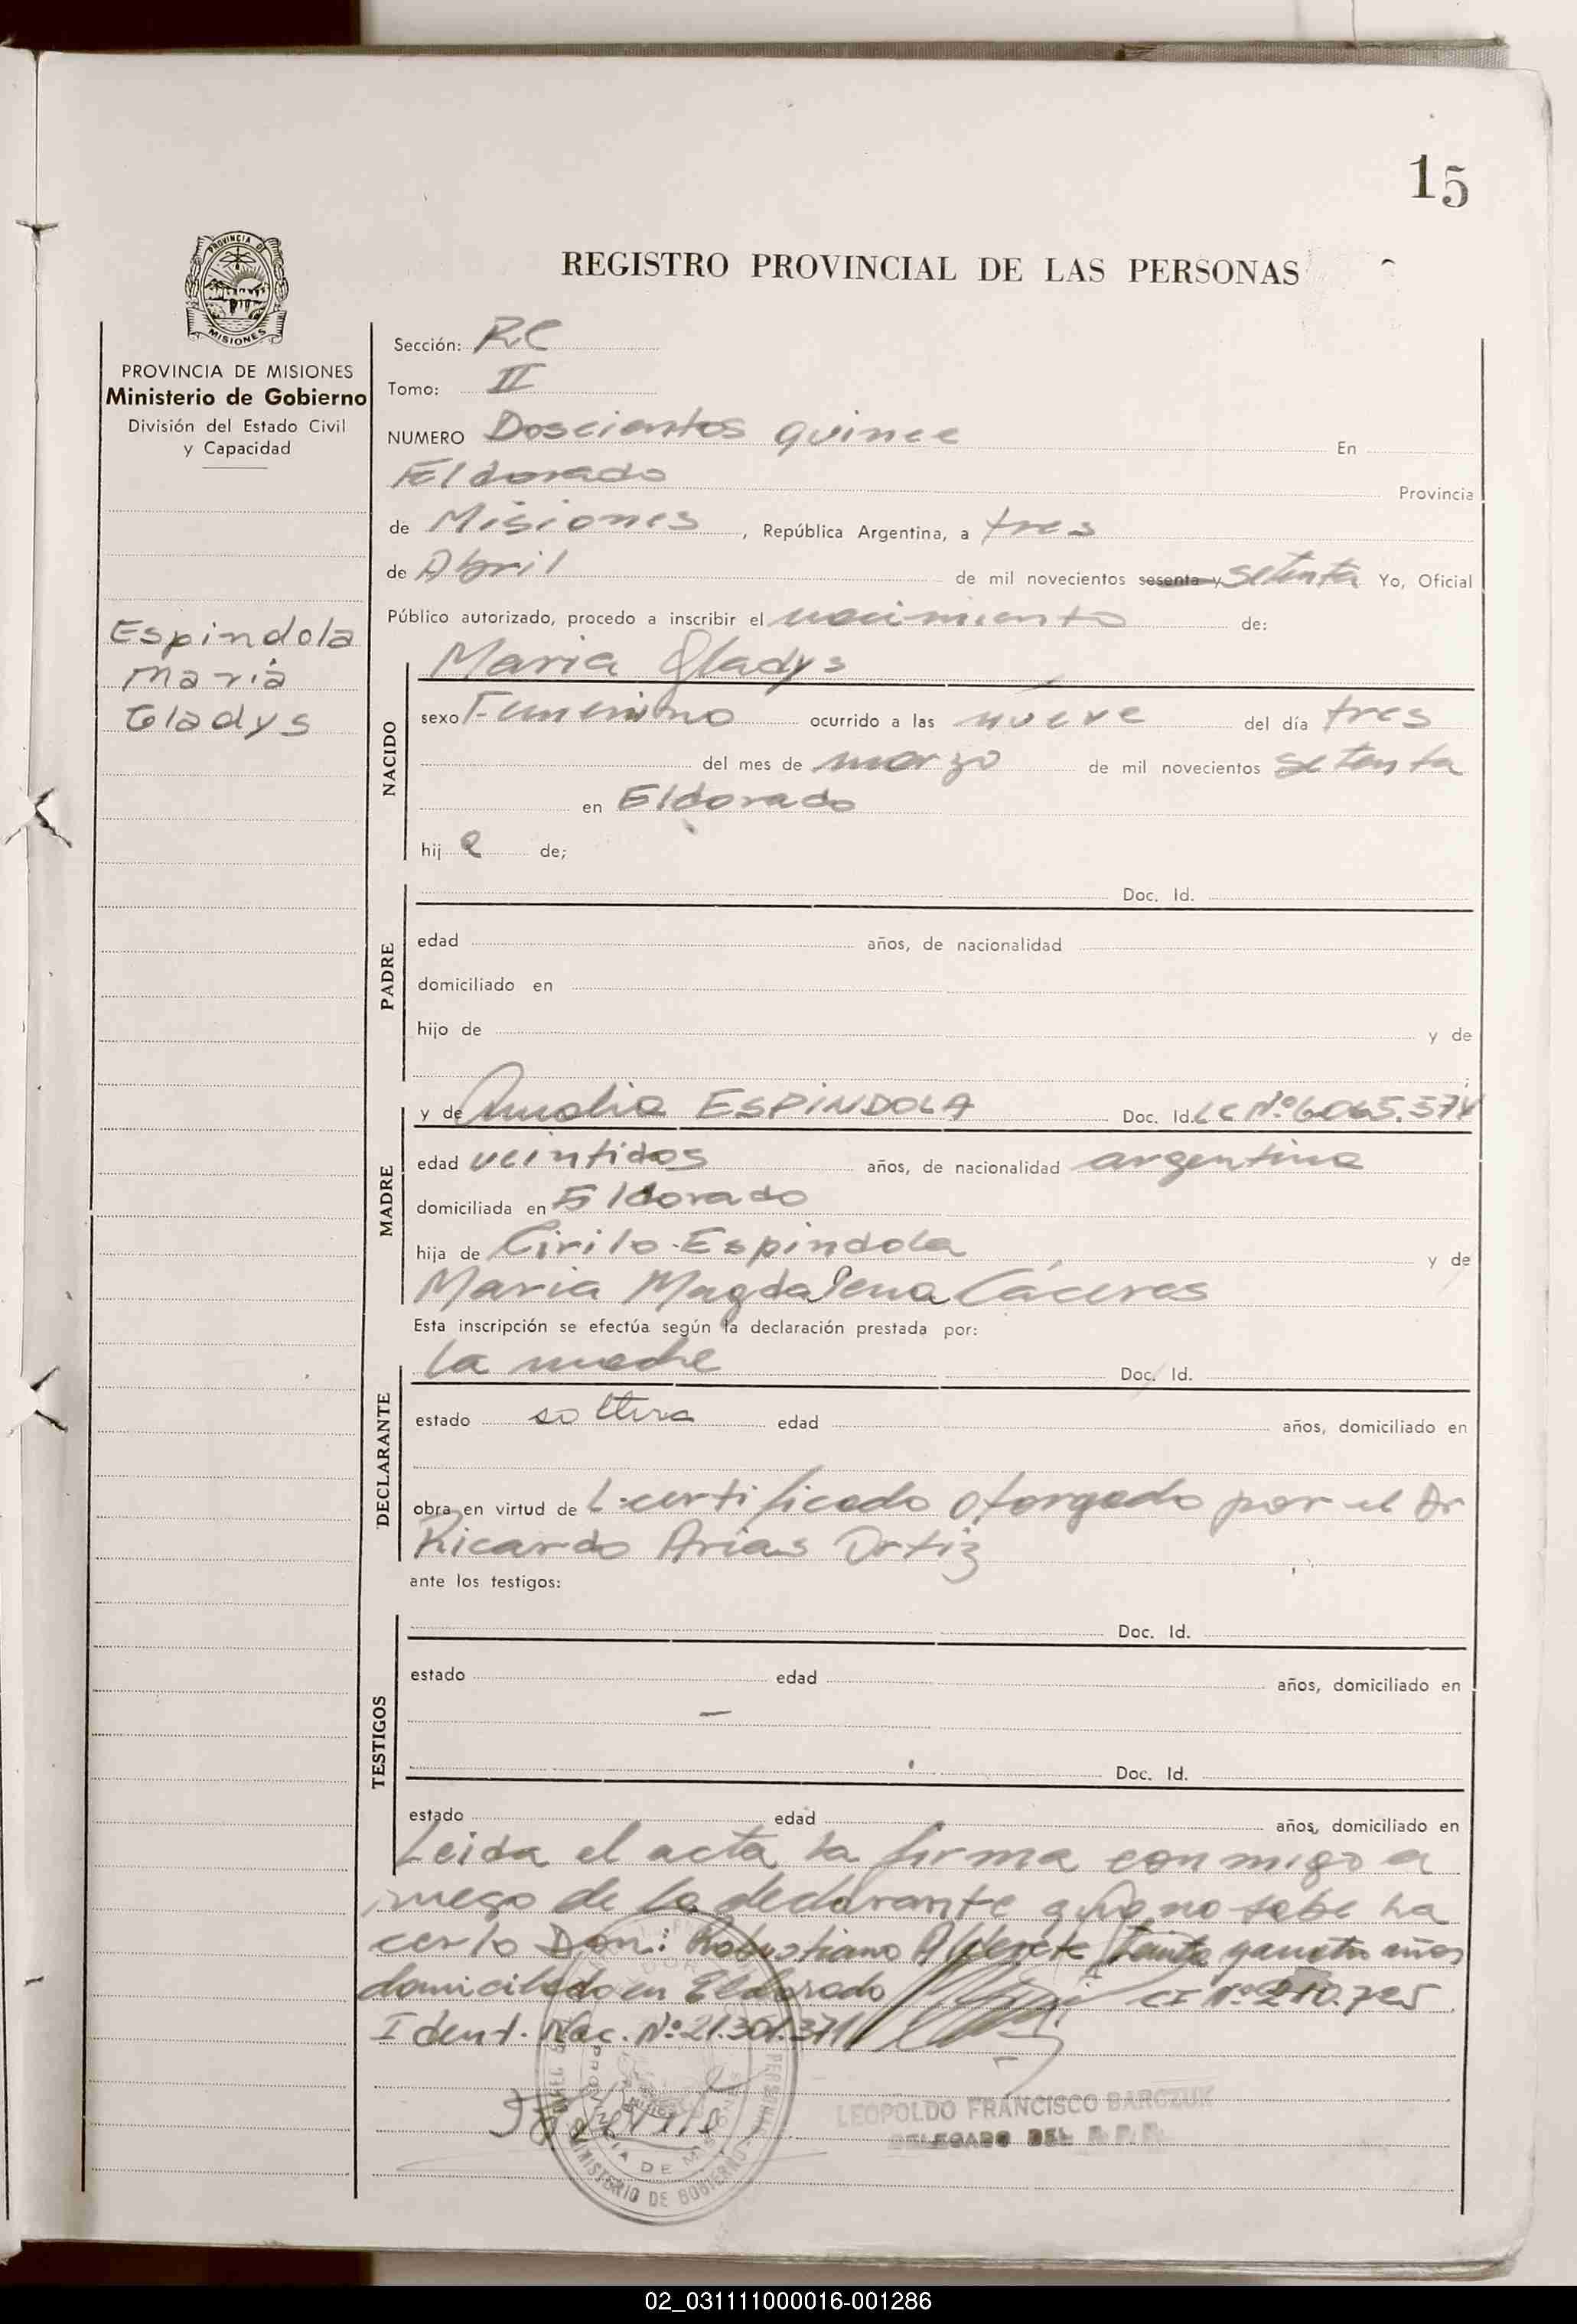 15
REGISTRO PROVINCIAL DE LAS PERSONAS
PROVINCIA DE
MISIONES
PROVINCIA DE MISIONES
Ministerio de Gobierno
División del Estado Civil
y Capacidad
Espindola
Maria
Gladys
Sección: RC
Tomo: II
NUMERO Doscientos quince En
Eldorado Provincia
de Misiones, República Argentina, a tres
de Abril de mil novecientos sesenta y setenta Yo, Oficial
Público autorizado, procedo a inscribir el nacimiento de:
Maria Gladys
NACIDO
sexo Femenino ocurrido a las nueve del día tres
del mes de marzo de mil novecientos setenta
en Eldorado
hij a de;
PADRE
Doc. Id.
edad años, de nacionalidad
domiciliado en
hijo de y de
MADRE
y de Amalia ESPINDOLA Doc. Id. LC Nº 6.065.574
edad veintidos años, de nacionalidad argentina
domiciliada en Eldorado
hija de Cirilo Espindola y de
Maria Magdalena Cáceres
Esta inscripción se efectúa según la declaración prestada por:
DECLARANTE
la madre Doc. Id.
estado soltera edad años, domiciliado en
obra en virtud de certificado otorgado por el Dr
Ricardo Arias Ortiz
ante los testigos:
TESTIGOS
Doc. Id.
estado edad años, domiciliado en
Doc. Id.
estado edad años, domiciliado en
Leida el acta la firma conmigo a
ruego de la declarante que no sabe ha
cerlo Don: Robustiano Alderete años
domiciliado en Eldorado CI Nº 210.725
Ident. Nac. Nº 21.301.371
LEOPOLDO FRANCISCO BARCZUK
DELEGADO DEL R.P.P.
PROVINCIA DE MISIONES
MINISTERIO DE GOBIERNO
02_031111000016-001286